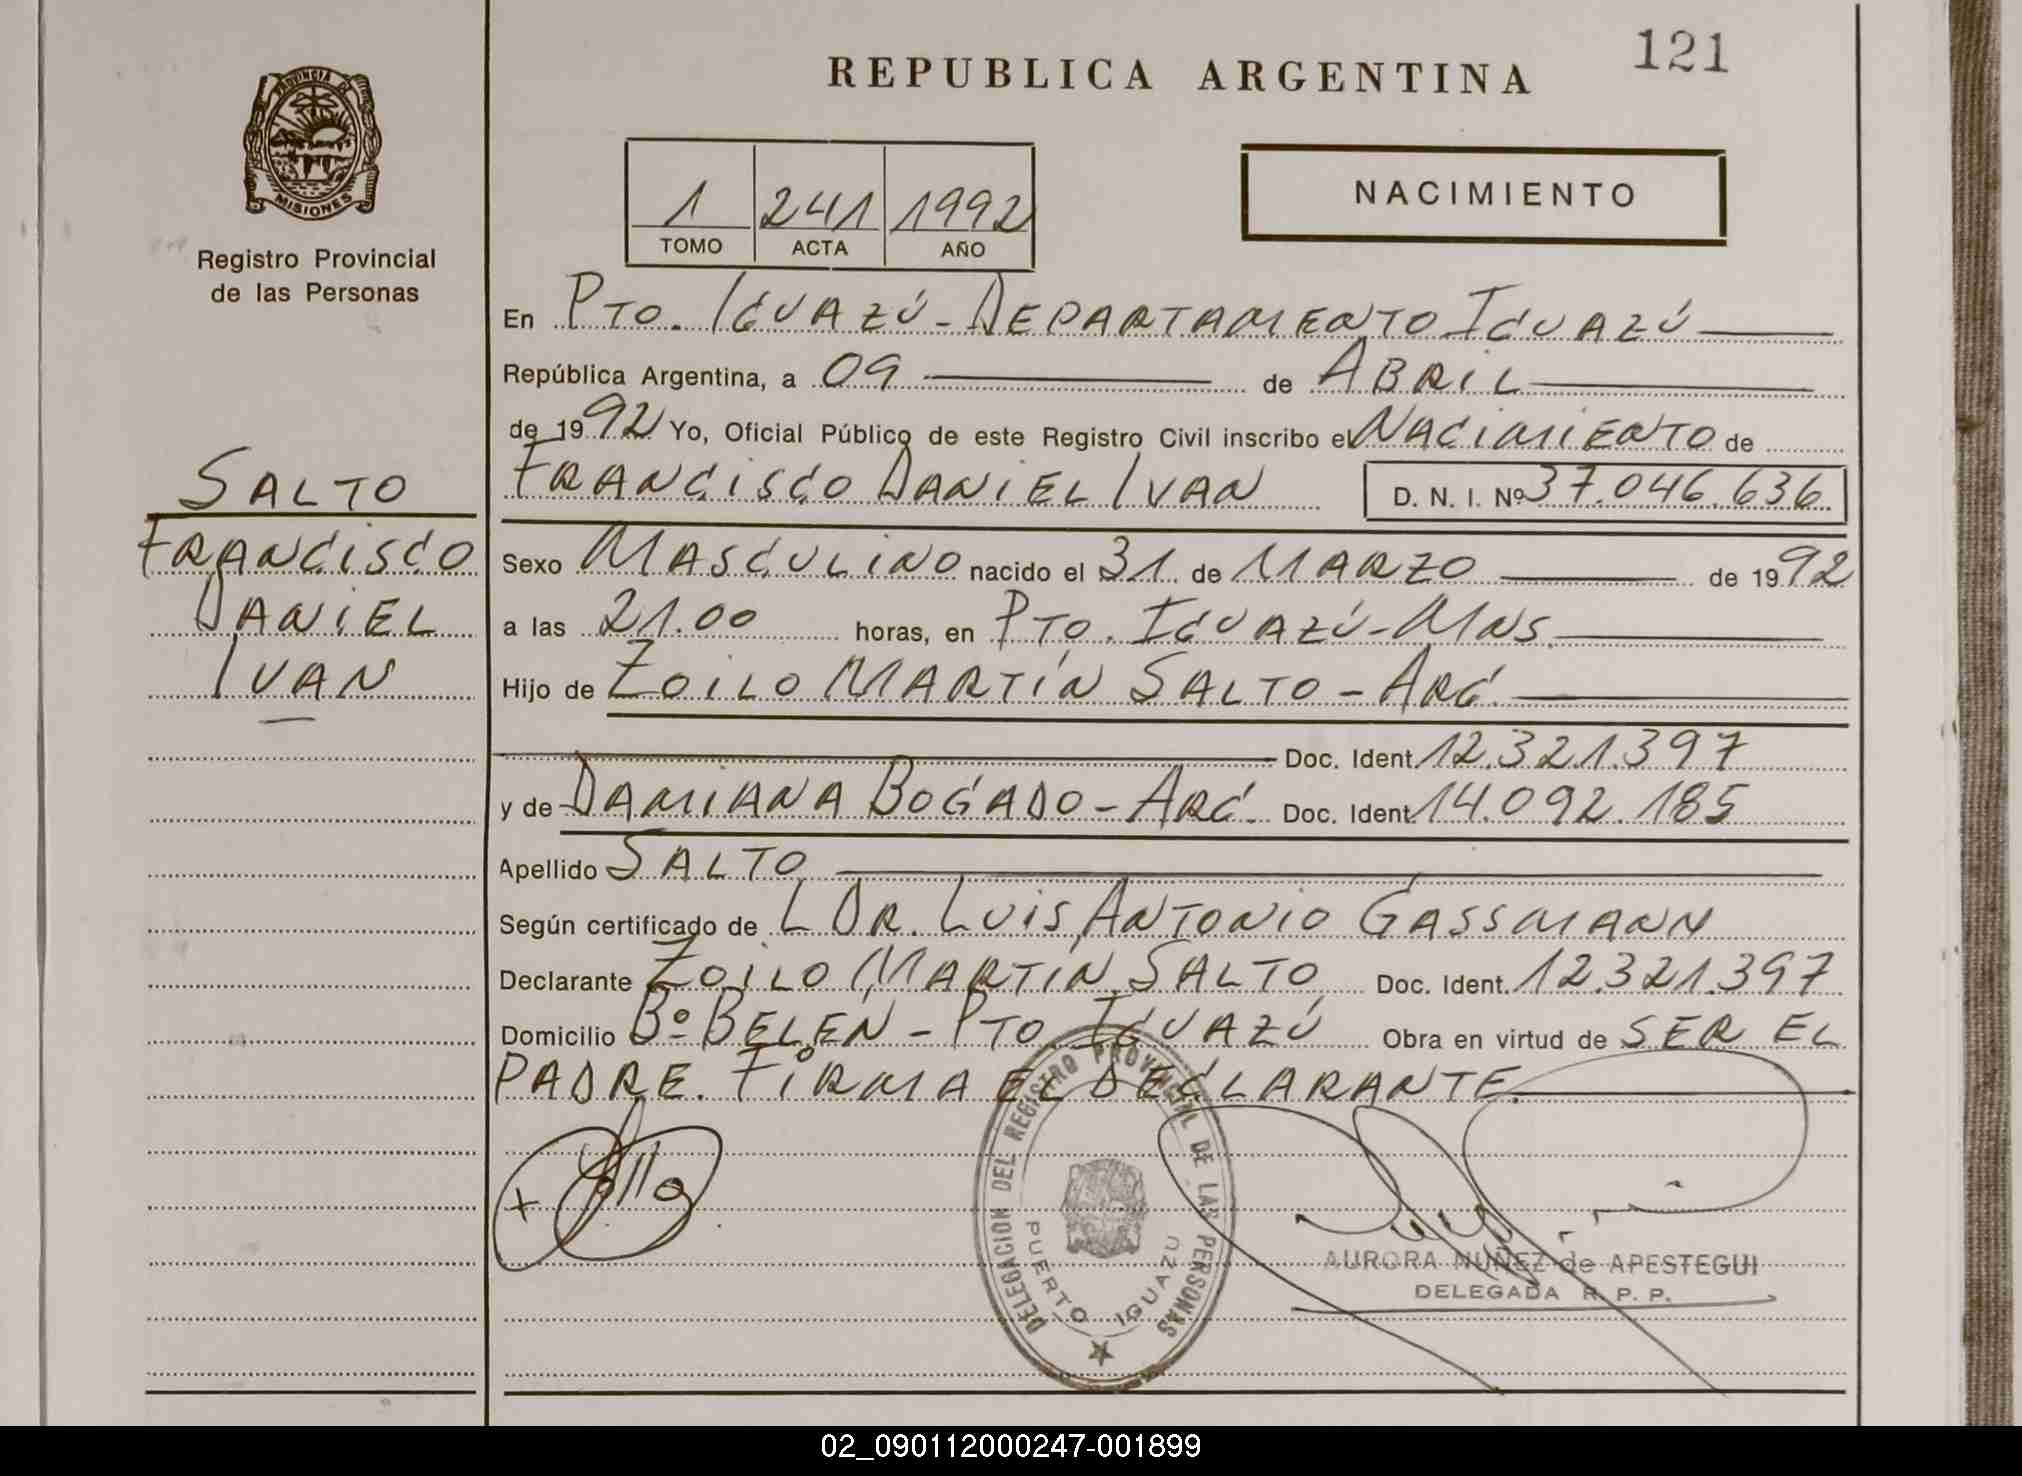 121
REPUBLICA ARGENTINA
PROVINCIA DE
MISIONES
Registro Provincial
de las Personas
NACIMIENTO
1 241 1992
TOMO ACTA AÑO
En PTO. IGUAZÚ - DEPARTAMENTO IGUAZÚ
República Argentina, a 09 de ABRIL
de 1992 Yo, Oficial Público de este Registro Civil inscribo el NACIMIENTO de
FRANCISCO DANIEL IVAN D. N. I. Nº 37.046.636
SALTO
FRANCISCO
DANIEL
IVAN
Sexo MASCULINO nacido el 31 de MARZO de 1992
a las 21.00 horas, en PTO. IGUAZÚ - MNS.
Hijo de ZOILO MARTÍN SALTO - ARG.
Doc. Ident. 12.321.397
y de DAMIANA BOGADO - ARG. Doc. Ident. 14.092.185
Apellido SALTO
Según certificado de L DR. LUIS ANTONIO GASSMANN
Declarante ZOILO MARTÍN SALTO Doc. Ident. 12.321.397
Domicilio Bº BELEN - PTO IGUAZÚ Obra en virtud de SER EL
PADRE. FIRMA EL DECLARANTE.
DELEGACION DEL REGISTRO PROVINCIAL DE LAS PERSONAS
PUERTO IGUAZU
AURORA NUÑEZ de APESTEGUI
DELEGADA R. P. P.
02_090112000247-001899